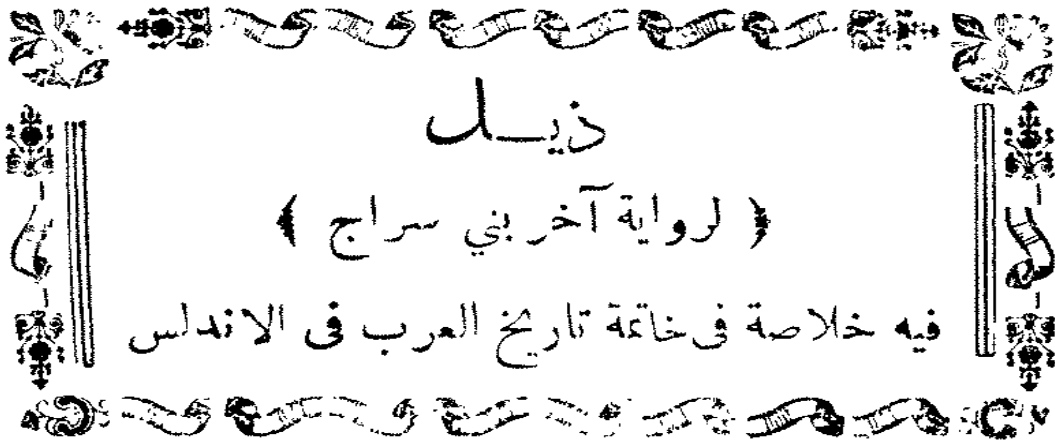 ذيـــل
﴿ لرواية آخر بني سراج ﴾
فيه خلاصة فى خاتمة تاريخ العرب فى الاندلس